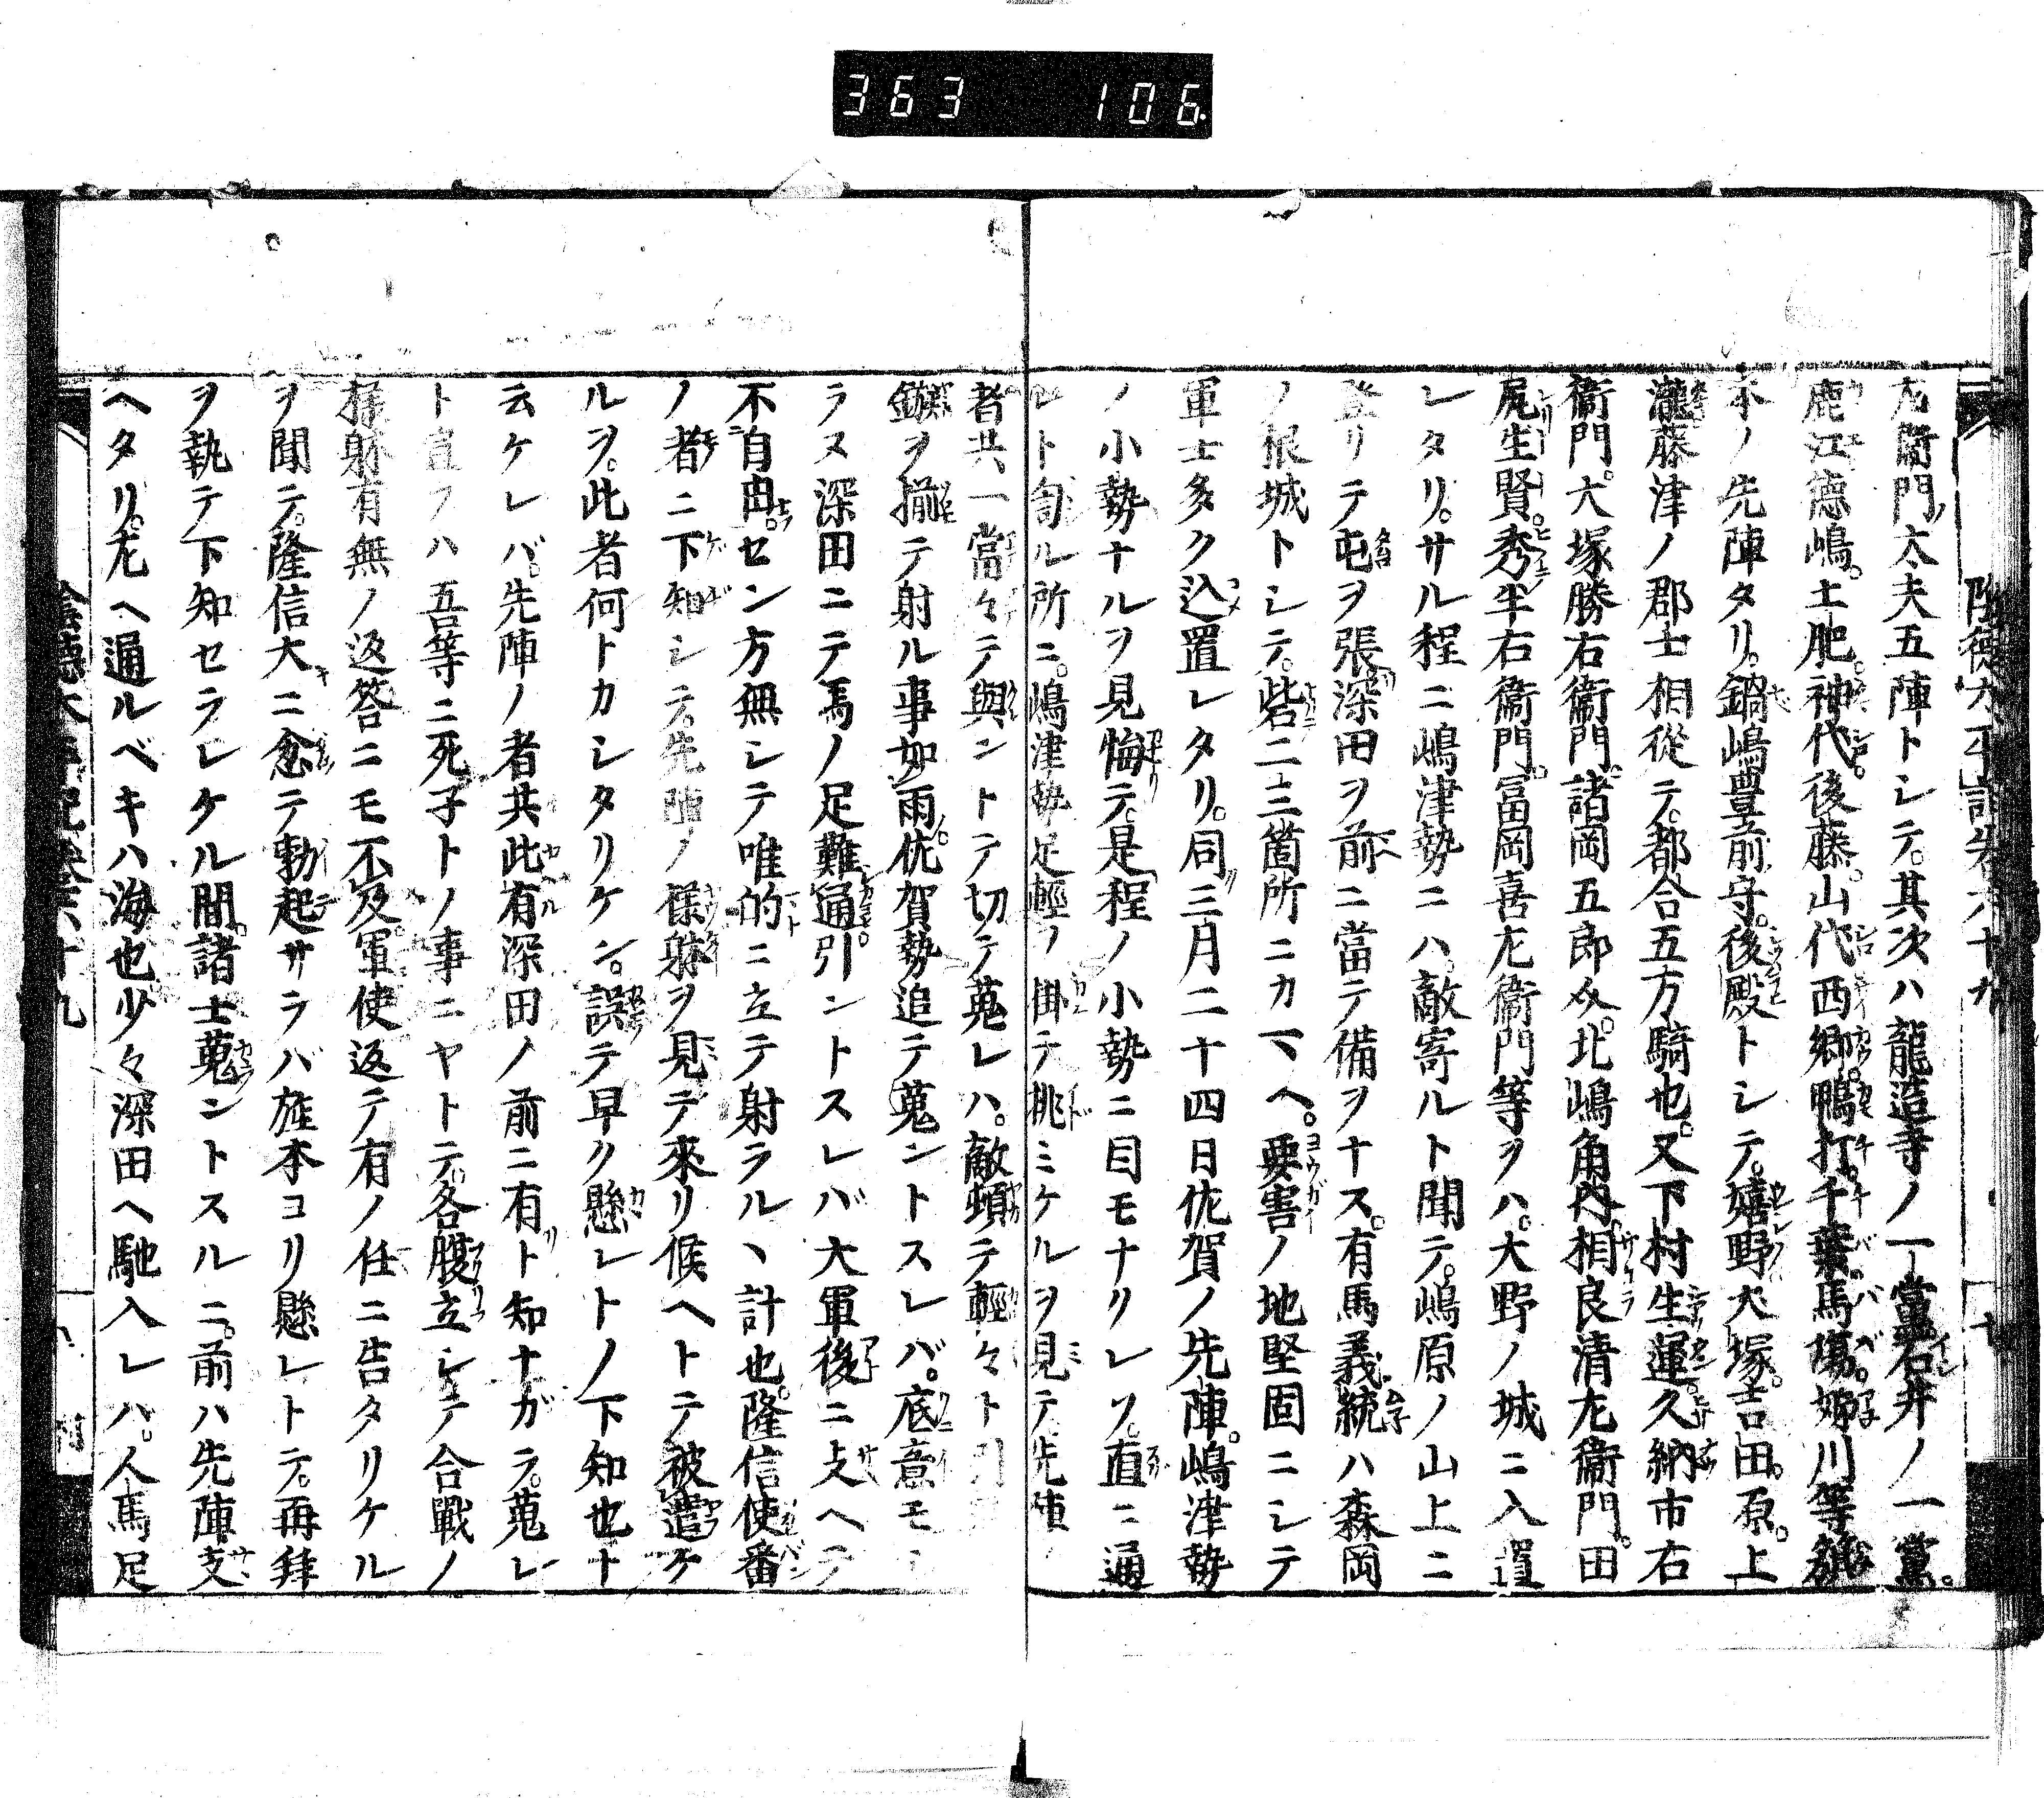 363 106
陰徳太平記巻六十九
左衞門太夫五陣トシテ。其次ハ龍造寺ノ一黨石井ノ一黨。
鹿江德嶋。土肥。神代。後藤。山代西郷。鴨打。千葉。馬塲。姉川等旗
本ノ先陣タリ。鍋嶋豊前守。後殿トシテ。嬉野犬塚。吉田。原。上
瀧藤津ノ郡士相從テ。都合五万騎也。又下村生運。久納市右
衞門。大塚勝右衞門。諸岡五郎ヌ。北嶋角内相良清左衞門。田
尻生賢。秀半右衞門。冨岡喜左衞門等ヲハ。大野ノ城ニ入置
レタリ。サル程ニ嶋津勢ニハ。敵寄ルト聞テ。嶋原ノ山上ニ
登リテ屯ヲ張深田ヲ前ニ當テ備ヲナス。有馬義統ハ森岡
ノ根城トシテ。砦二三箇所ニカマヘ。要害ノ地堅固ニシテ
軍士多ク込置レタリ。同三月二十四日佐賀ノ先陣。嶋津勢
ノ小勢ナルヲ見悔テ。是程ノ小勢ニ目モナリレソ。直ニ通
レト訇ル所ニ。嶋津勢足輕ノ掛テ挑ミケルヲ見テ。先陣ノ
者共一當々テ與ントテ切テ蒐レハ。敵頓テ輕々ト引
鏃ヲ揃テ射ル事如雨。佐賀勢追テ蒐ントスレバ。底意モ
ラヌ深田ニテ馬ノ足難通。引ントスレバ大軍後ニ支ヘテ
不自由。セン方無シテ唯的ニ立テ射ラルヽ計也。隆信使番
ノ者ニ下知シテ。先陣ノ様躰ヲ見テ來リ候ヘトテ被遣ケ
ルヲ。此者何トカシタリケン。誤テ早ク懸レトノ下知也ト
云ケレバ。先陣ノ者共此有深田ノ前ニ有ト知ナガラ。蒐レ
ト宣フハ吾等ニ死子トノ事ニヤトテ。各腹立シテ合戰ノ
様躰有無ノ返答ニモ不及。軍使返テ有ノ任ニ告タリケル
ヲ聞テ。隆信大ニ忿テ勃起サラバ旌本コリ懸レトテ。再拜
ヲ執テ下知セラレケル間。諸士蒐ントスルニ。前ハ先陣支
ヘタリ。左ヘ通ルベキハ海也。少々深田ヘ馳入レハ。人馬足
陰德太平記卷六十九